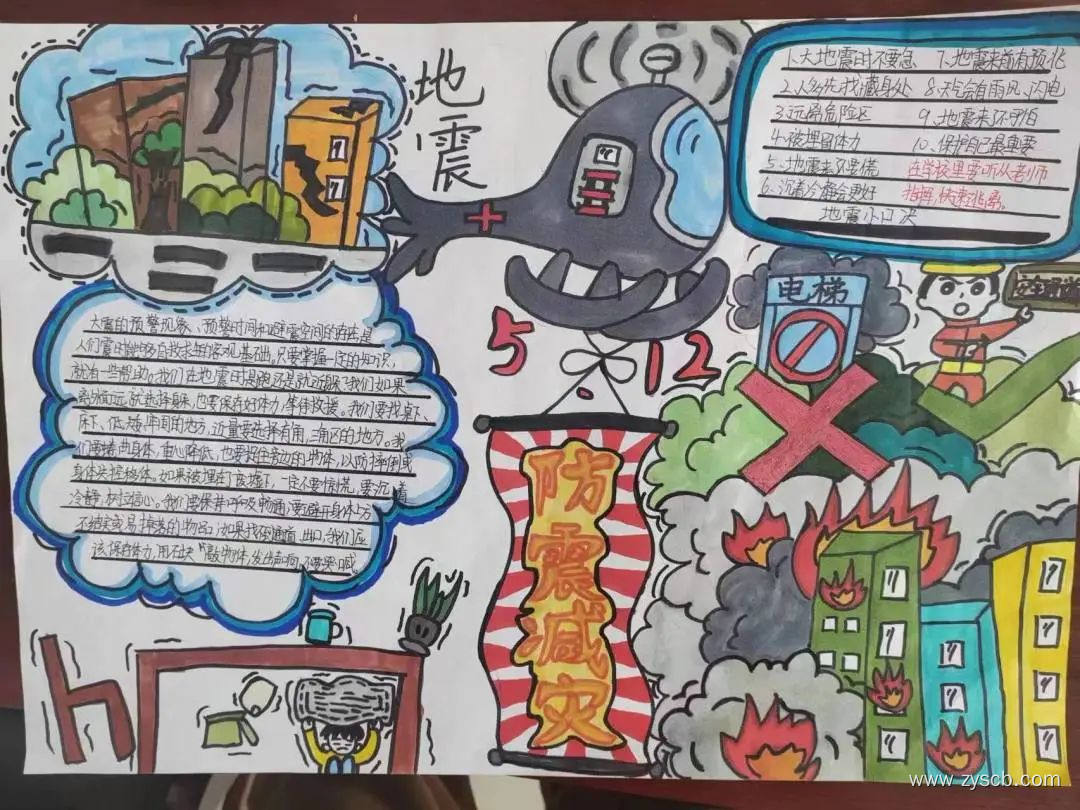 地震
1.大地震时不要急
2.人多先找藏身处
3.远离危险区
4.被埋留体力
5.地震来了要慌
6.沉着冷静会更好
7.地震来前有预兆
8.天气会有雨风、闪电
9.地震来了不可怕
10.保护自己最重要
在学校里要听从老师
指挥,快速逃离。
地震小口决
电梯
5.12
防震减灾
大震的预警现象、预警时间和避震空间的存在,是
人们震时能够自救求生的客观基础。只要掌握一定的知识,
就有一些帮助。我们在地震时是跑还是就近躲?我们如果
离外面远,就选择躲,也要保存好体力,等待救援。我们要找桌下、
床下、低矮、牢固的地方,近量要选择有角,三角区的地方。我
们要蜷曲身体,重心降低,也要抓住旁边的物体,以防摔倒或
身体失控移位。如果被埋在了废墟下,一定不要惊慌,要沉着
冷静,树立信心。我们要保持呼吸畅通,要避开身体上方
不结实易掉落的物品,如果找不到通道、出口,我们应
该保存体力,用石块敲物体,发出声响,不要哭喊。
www.zyscb.com